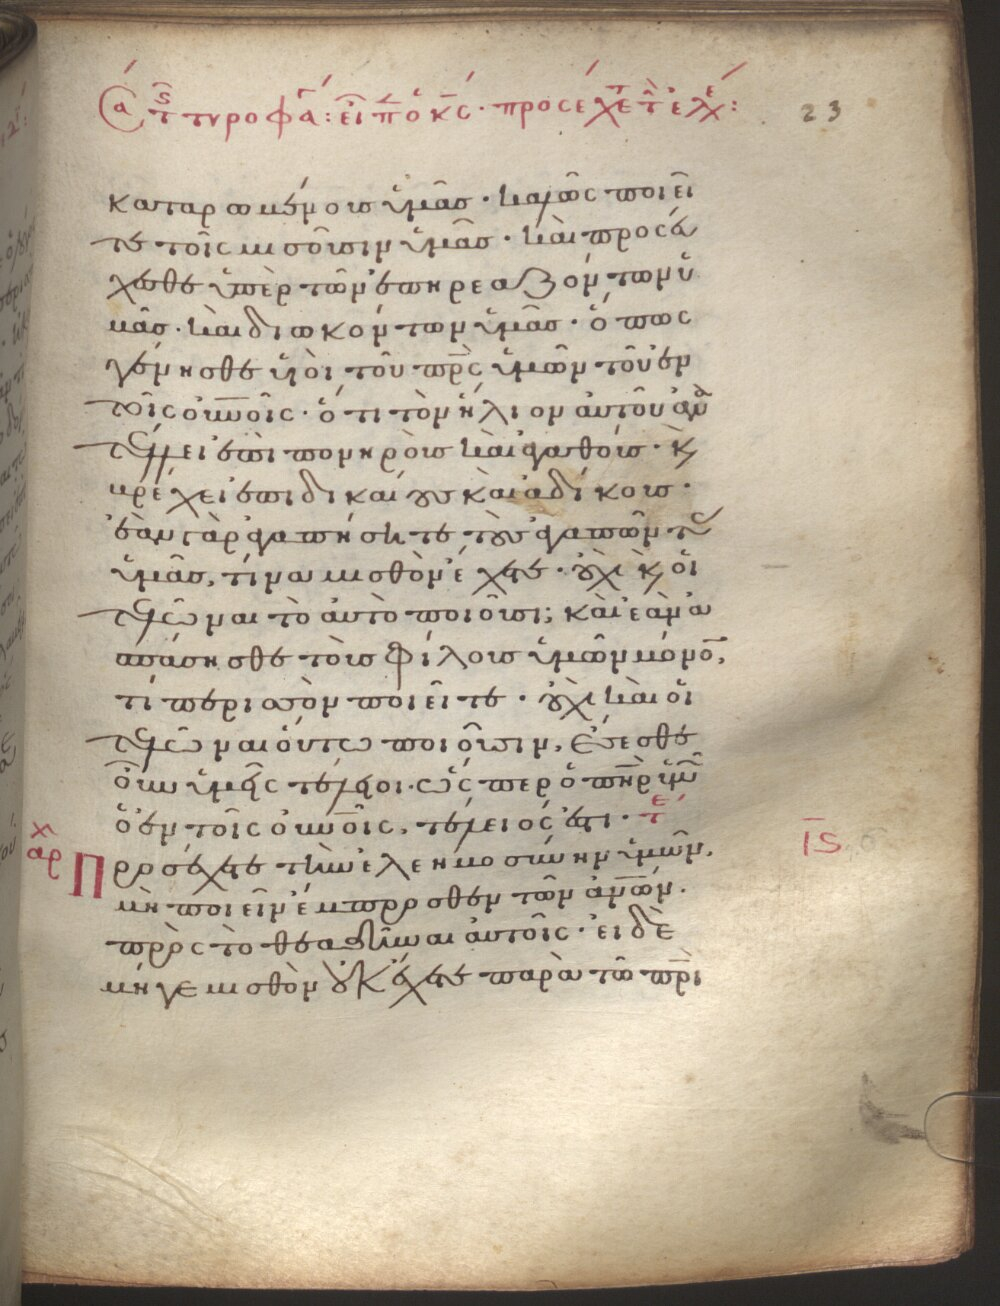 Σα τ τυροφα: εἶπ ὁ κς· προσέχετε τ ἐλε: 23
καταρωμένοις ὑμᾶς· καλῶς ποιεῖ
τε τοῖς μισοῦσιν ὑμᾶς· καὶ προσεύ
χεσθε ὑπὲρ τῶν ἐπηρεαζόντων ὑ
μᾶς· καὶ διωκόντων ὑμᾶς· ὅπως
γένησθε υἱοὶ τοῦ πρς ὑμῶν τοῦ ἐν
τοῖς οὐνοῖς· ὅτι τὸν ἥλιον αὐτοῦ ἀνα
τέλλει ἐπὶ πονηροὺς καὶ ἀγαθούς· κ
βρέχει ἐπὶ δικαίους καὶ ἀδίκους·
ἐὰν γὰρ ἀγαπήσητε τοὺς ἀγαπῶντας
ὑμᾶς, τίνα μισθὸν ἔχετε· οὐχὶ κ οἱ
τελῶναι τὸ αὐτὸ ποιοῦσι; καὶ ἐὰν ἀ
σπάσησθε τοὺς φίλους ὑμῶν μόνον,
τί περισσὸν ποιεῖτε· οὐχὶ καὶ οἱ
τελῶναι οὕτω ποιοῦσιν, ἔσεσθε
οὖν ὑμεῖς τέλειοι· ὥσπερ ὁ πηρ ὑμῶν
ὁ ἐν τοῖς οὐνοῖς, τέλειός ἐστι· τε
αρχ
Προσέχετε τὴν ἐλεημοσύνην ὑμῶν, ις
μὴ ποιεῖν ἔμπροσθεν τῶν ἀνων·
πρὸς τὸ θεαθῆναι αὐτοῖς· εἰ δὲ
μήγε μισθὸν οὐκ ἔχετε παρὰ τῶ πρι